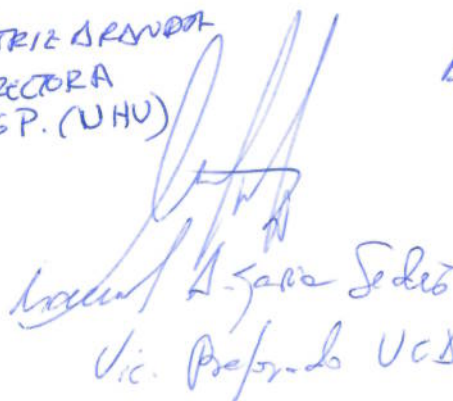 TRIZ ARANDA
RECTORA
S P. (UHU)
Manuel A. García Sedeño
Vic. Profesorado UCA